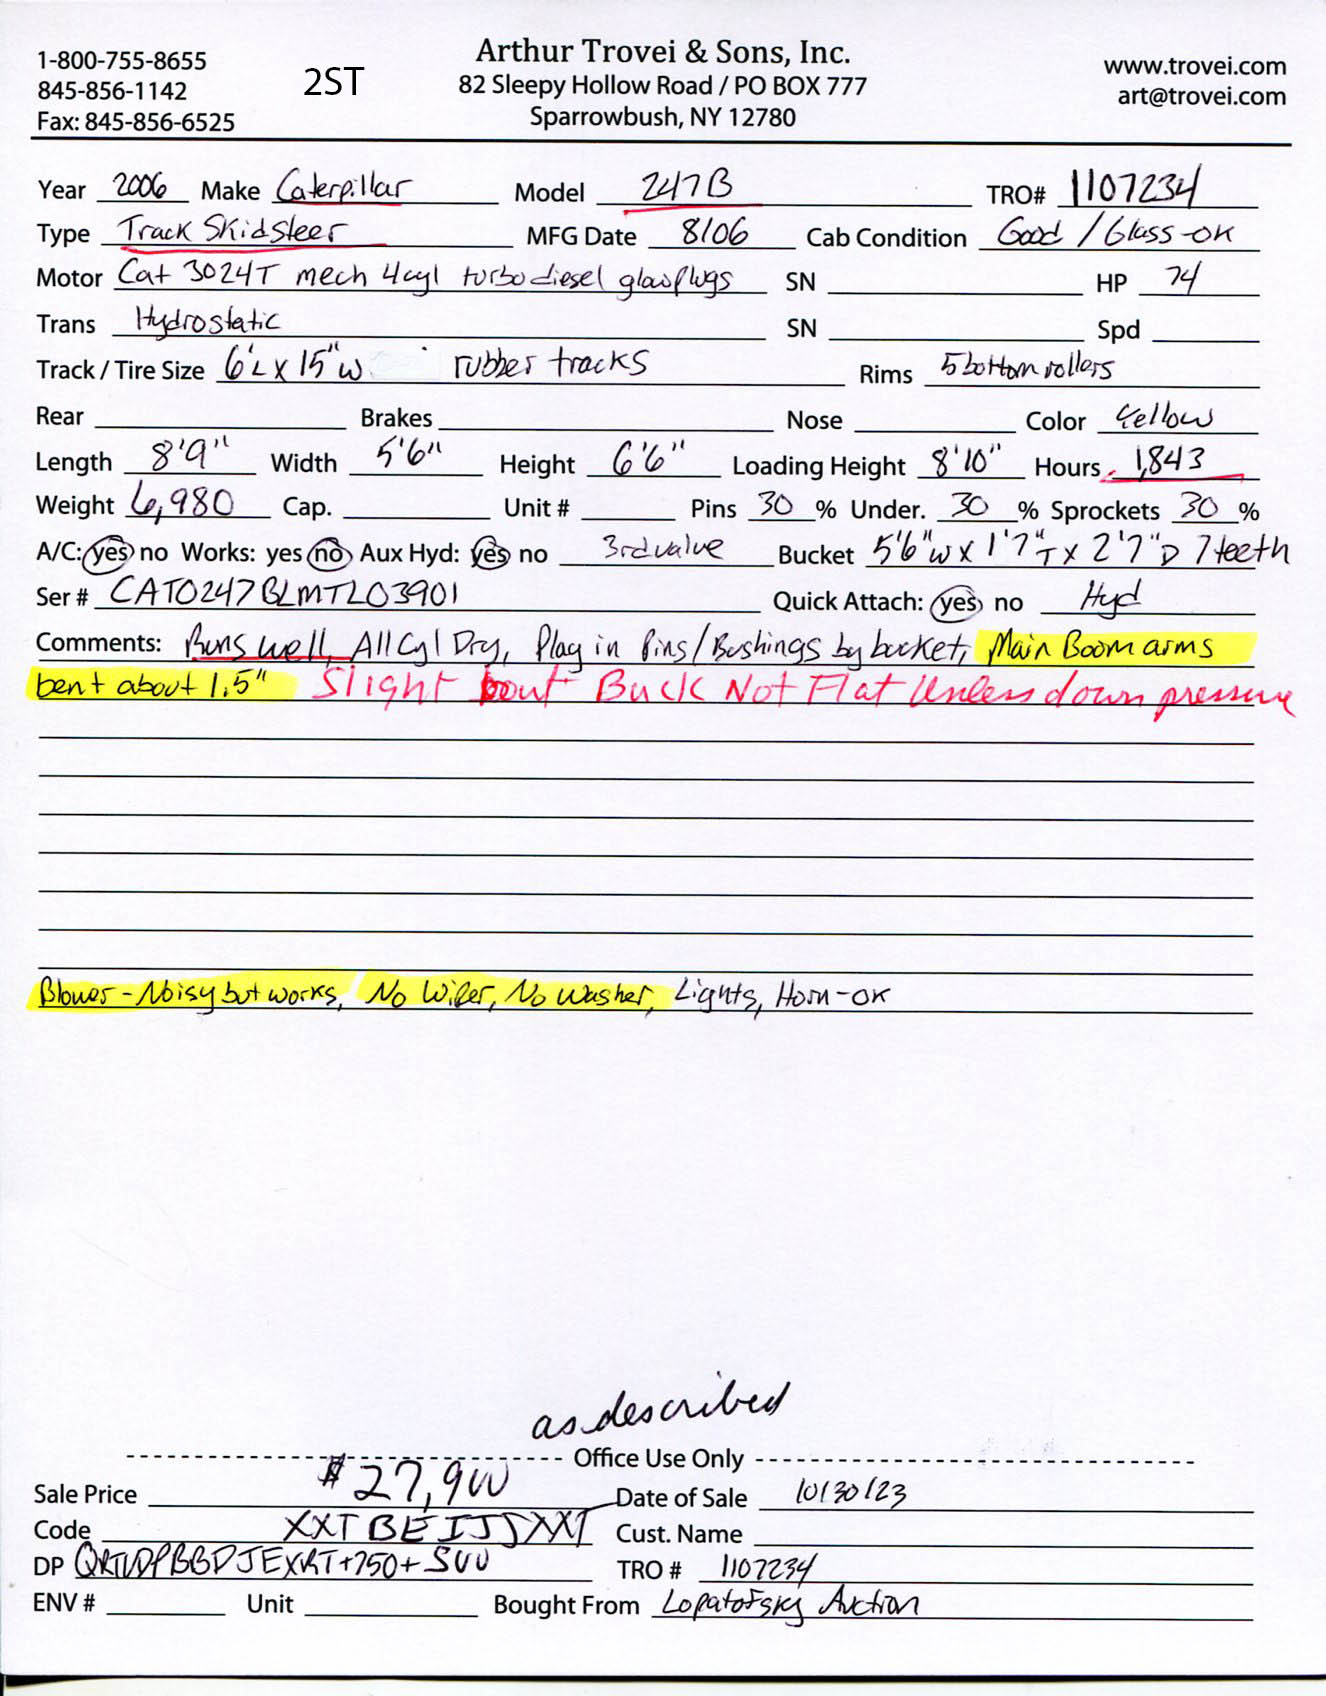 1-800-755-8655
845-856-1142
Fax: 845-856-6525
2ST
Arthur Trovei & Sons, Inc.
82 Sleepy Hollow Road / PO BOX 777
Sparrowbush, NY 12780
www.trovei.com
art@trovei.com
Year 2006 Make Caterpillar Model 247B TRO# 1107234
Type Track Skidsteer MFG Date 8/06 Cab Condition Good / Glass-ok
Motor Cat 3024T mech 4cyl turbo diesel glowplugs SN HP 74
Trans Hydrostatic SN Spd
Track / Tire Size 6'L x 15"W rubber tracks Rims 5 bottom rollers
Rear Brakes Nose Color Yellow
Length 8'9" Width 5'6" Height 6'6" Loading Height 8'10" Hours 1,843
Weight 6,980 Cap. Unit # Pins 30 % Under. 30 % Sprockets 30 %
A/C: yes no Works: yes no Aux Hyd: yes no 3rd valve Bucket 5'6"W x 1'7"T x 2'7"D 7 teeth
Ser # CAT0247BLMTL03901 Quick Attach: yes no Hyd
Comments: Runs well, All Cyl Dry, Play in Pins/Bushings by bucket, Main Boom arms
bent about 1.5" Slight bout Buck Not Flat Unless down pressure
Blower - Noisy but works, No Wiper, No Washer, Lights, Horn-ok
as described
Office Use Only
Sale Price $27,900 Date of Sale 10/30/23
Code XXTBEIJJXXT Cust. Name
DP +750+500 TRO # 1107234
ENV # Unit Bought From Lopatofsky Auction